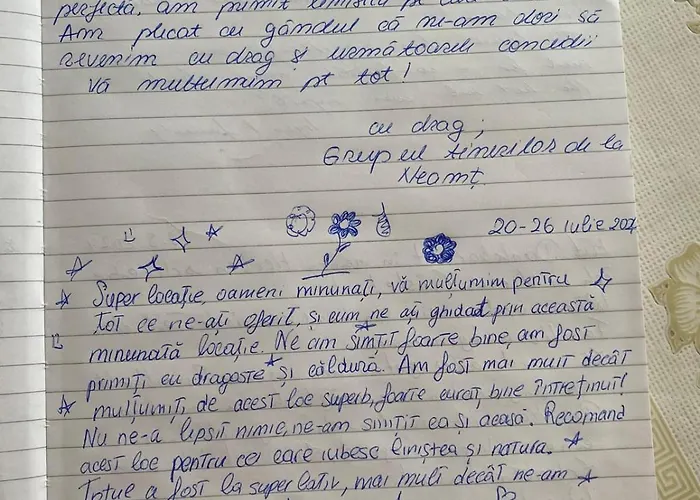 perfectă, am primit
Am plecat cu gândul că ne-am dori să
revenim cu drag și următoarele concedii
Vă multumim pt tot!
cu drag,
Grupul tinerilor de la
Neamț.
20-26 iulie 202
Super locație, oameni minunați, vă mulțumim pentru
tot ce ne-ați oferit, și cum ne ați ghidat prin această
minunată locație. Ne am simțit foarte bine, am fost
primiți cu dragoste și căldură. Am fost mai mult decât
mulțumiți de acest loc superb, foarte curat, bine întreținut!
Nu ne-a lipsit nimic, ne-am simțit ca și acasă. Recomand
acest loc pentru cei care iubesc liniștea și natura.
Totue a fost la superlativ, mai mult decât ne-am